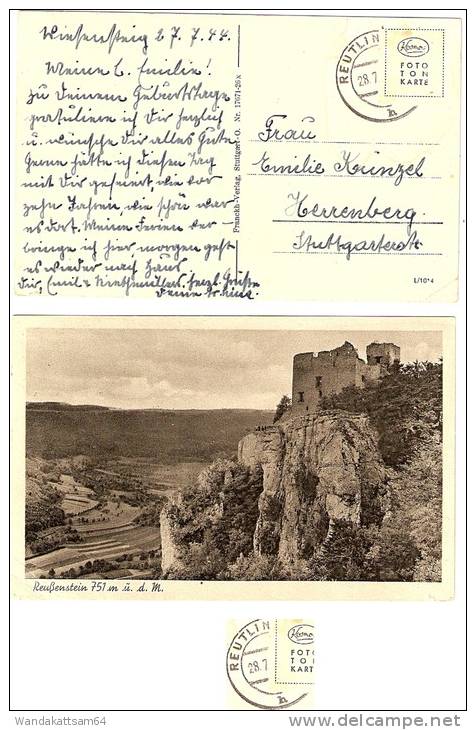 Wiesensteig 27.7.44.
Meine l. Emilie!
Zu Deinem Geburtstage
gratuliere ich Dir herzlich
u. wünsche Dir alles Gute
Gerne hätte ich diesen Tag
mit Dir gefeiert, wie vor
zehn Jahren, wie schön war
es dort. Meine Ferien ver-
bringe ich hier, morgen geht
es wieder nach Haus
Dir, Emil & herzl. Grüße
Deine
Franckh-Verlag, Stuttgart-O. Nr. 17071-26 x
REUTLIN
28.7
h
Kosmos
FOTO
TON
KARTE
Frau
Emilie Künzel
Herrenberg.
Stuttgarterstr.
L/10*4
Reußenstein 751 m ü. d. M.
REUTLIN
28.7
h
Kosmos
FOTO
TON
KARTE
Wandakattsam64
www.delcampe.net